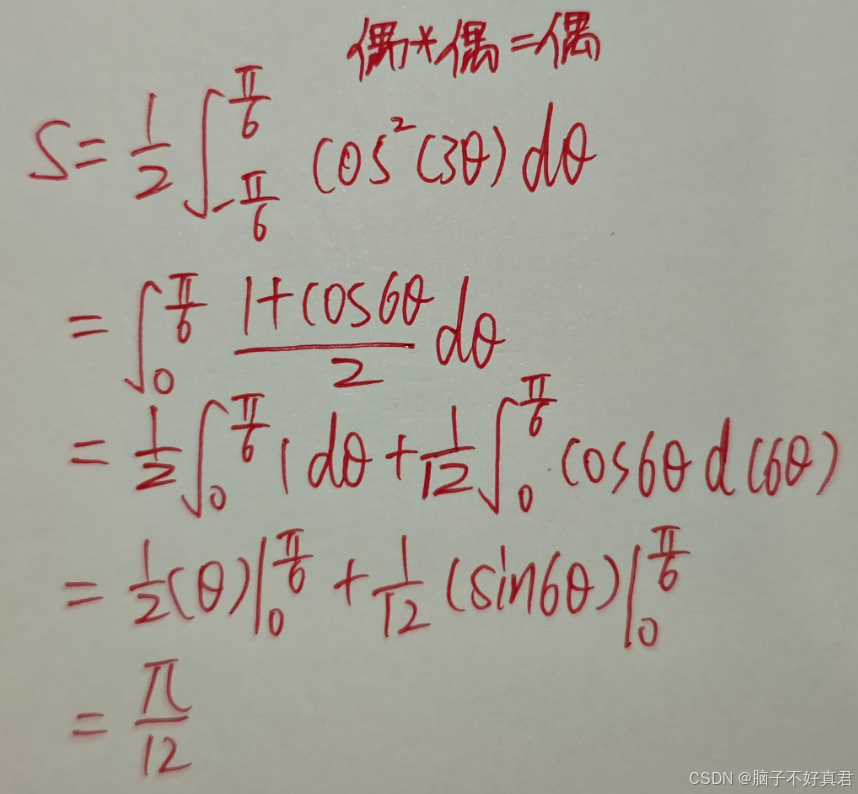 偶*偶=偶
S = 1/2 ∫_{-π/6}^{π/6} cos²(3θ) dθ
= ∫_0^{π/6} (1+cos6θ)/2 dθ
= 1/2 ∫_0^{π/6} 1 dθ + 1/12 ∫_0^{π/6} cos6θ d(6θ)
= 1/2 (θ)|_0^{π/6} + 1/12 (sin6θ)|_0^{π/6}
= π/12
CSDN @脑子不好真君